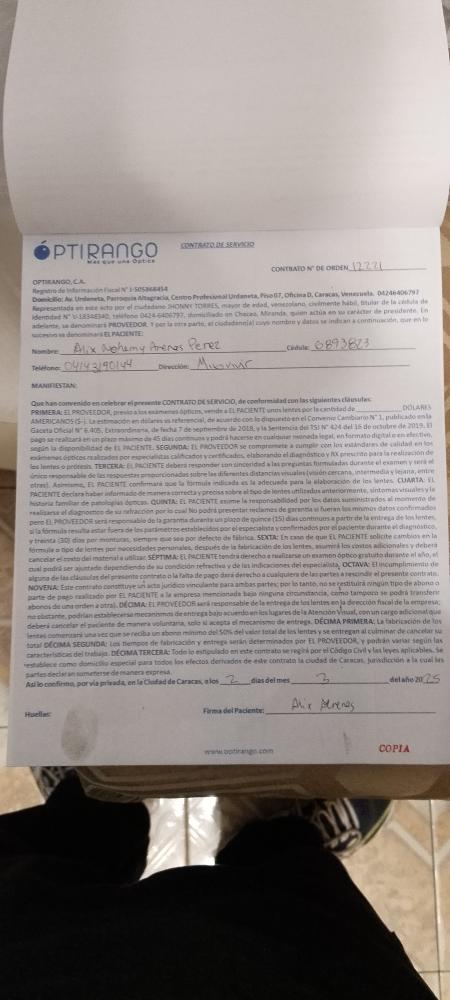 ÓPTIRANGO
Más que una Óptica
CONTRATO DE SERVICIO
CONTRATO N° DE ORDEN 12221
OPTIRANGO, C.A.
Registro de Información Fiscal N° J-505868454
Domicilio: Av. Urdaneta, Parroquia Altagracia, Centro Profesional Urdaneta, Piso 07, Oficina D, Caracas, Venezuela. 04246406797
Representada en este acto por el ciudadano JHONNY TORRES, mayor de edad, venezolano, civilmente hábil, titular de la cédula de
identidad N° V-18348340, teléfono 0424-6406797, domiciliado en Chacao, Miranda, quien actúa en su carácter de presidente. En
adelante, se denominará PROVEEDOR. Y por la otra parte, el ciudadano(a) cuyo nombre y datos se indican a continuación, que en lo
sucesivo se denominará EL PACIENTE:
Nombre: Alix Nohemy Arenas Perez Cédula: 6893823
Teléfono: 04143190144 Dirección:
MANIFIESTAN:
Que han convenido en celebrar el presente CONTRATO DE SERVICIO, de conformidad con las siguientes cláusulas:
PRIMERA: EL PROVEEDOR, previo a los exámenes ópticos, vende a EL PACIENTE unos lentes por la cantidad de DÓLARES
AMERICANOS ($-). La estimación en dólares es referencial, de acuerdo con lo dispuesto en el Convenio Cambiario N° 1, publicado en la
Gaceta Oficial N° 6.405, Extraordinaria, de fecha 7 de septiembre de 2018, y la Sentencia del TSJ N° 424 del 16 de octubre de 2019. El
pago se realizará en un plazo máximo de 45 días continuos y podrá hacerse en cualquier moneda legal, en formato digital o en efectivo,
según la disponibilidad de EL PACIENTE. SEGUNDA: EL PROVEEDOR se compromete a cumplir con los estándares de calidad en los
exámenes ópticos realizados por especialistas calificados y certificados, elaborando el diagnóstico y RX prescrito para la realización de
los lentes o prótesis. TERCERA: EL PACIENTE deberá responder con sinceridad a las preguntas formuladas durante el examen y será el
único responsable de las respuestas proporcionadas sobre las diferentes distancias visuales (visión cercana, intermedia y lejana, entre
otras). Asimismo, EL PACIENTE confirmará que la fórmula indicada es la adecuada para la elaboración de los lentes. CUARTA: EL
PACIENTE declara haber informado de manera correcta y precisa sobre el tipo de lentes utilizados anteriormente, síntomas visuales y la
historia familiar de patologías ópticas. QUINTA: EL PACIENTE asume la responsabilidad por los datos suministrados al momento de
realizarse el diagnostico de su refracción por lo cual No podrá presentar reclamos de garantía si fueran los mismos datos confirmados
pero EL PROVEEDOR será responsable de la garantía durante un plazo de quince (15) días continuos a partir de la entrega de los lentes,
si la fórmula resulta estar fuera de los parámetros establecidos por el especialista y confirmados por el paciente durante el diagnóstico,
y treinta (30) días por monturas, siempre que sea por defecto de fábrica. SEXTA: En caso de que EL PACIENTE solicite cambios en la
fórmula o tipo de lentes por necesidades personales, después de la fabricación de los lentes, asumirá los costos adicionales y deberá
cancelar el costo del material a utilizar. SÉPTIMA: EL PACIENTE tendrá derecho a realizarse un examen óptico gratuito durante el año, el
cual podrá ser ajustado dependiendo de su condición refractiva y de las indicaciones del especialista. OCTAVA: El incumplimiento de
alguna de las cláusulas del presente contrato o la falta de pago dará derecho a cualquiera de las partes a rescindir el presente contrato.
NOVENA: Este contrato constituye un acto jurídico vinculante para ambas partes; por lo tanto, no se restituirá ningún tipo de abono o
parte de pago realizado por EL PACIENTE a la empresa mencionada bajo ninguna circunstancia, como tampoco se podrá transferir
abonos de una orden a otra). DÉCIMA: EL PROVEEDOR será responsable de la entrega de los lentes en la dirección fiscal de la empresa;
no obstante, podrían establecerse mecanismos de entrega bajo acuerdo en los lugares de la Atención Visual, con un cargo adicional que
deberá cancelar el paciente de manera voluntaria, solo si acepta el mecanismo de entrega. DÉCIMA PRIMERA: La fabricación de los
lentes comenzará una vez que se reciba un abono mínimo del 50% del valor total de los lentes y se entregan al culminar de cancelar su
total DÉCIMA SEGUNDA: Los tiempos de fabricación y entrega serán determinados por EL PROVEEDOR, y podrán variar según las
características del trabajo. DÉCIMA TERCERA: Todo lo estipulado en este contrato se regirá por el Código Civil y las leyes aplicables. Se
establece como domicilio especial para todos los efectos derivados de este contrato la ciudad de Caracas, jurisdicción a la cual las
partes declaran someterse de manera expresa.
Así lo confirmo, por vía privada, en la Ciudad de Caracas, a los 2 días del mes 3 del año 2025
Huellas: Firma del Paciente: Alix Arenas
www.optirango.com
COPIA